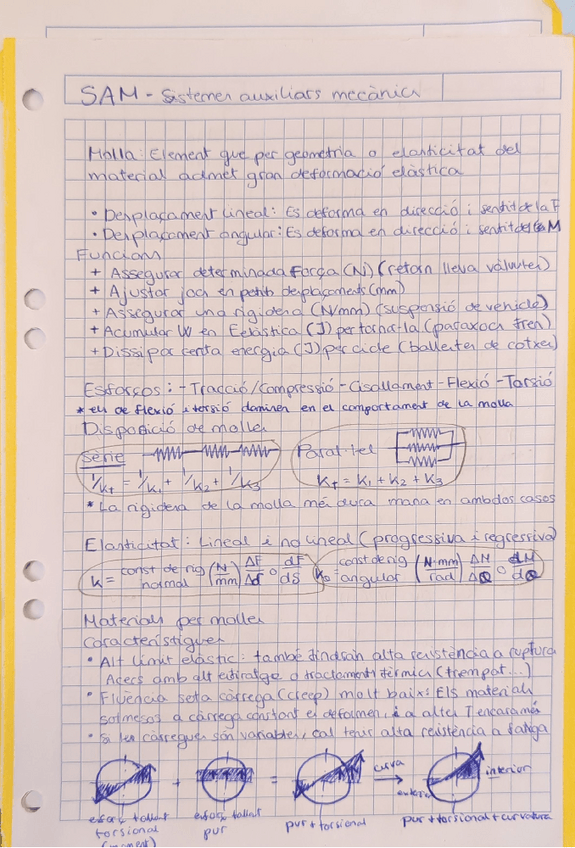 SAM - Sistemes auxiliars mecànics
Molla: Element que per geometria o elasticitat del
material admet gran deformació elàstica
• Desplaçament lineal: Es deforma en direcció i sentit de la F
• Desplaçament angular: Es deforma en direcció i sentit del M
Funcions
+ Assegurar determinada força (N) (retorn lleva vàlvules)
+ Ajustar jocs en petits desplaçaments (mm)
+ Assegurar una rigidesa (N/mm) (suspensió de vehicle)
+ Acumular W en E elàstica (J) per tornar-la (paraxocs tren)
+ Dissipar certa energia (J) per cicle (ballestes de cotxe)
Esforços: - Tracció/Compressió - Cisallament - Flexió - Torsió
* els de flexió i torsió dominen en el comportament de la molla
Disposició de molles
Sèrie
Paral·lel
1/Kt = 1/K1 + 1/K2 + 1/K3
Kt = K1 + K2 + K3
* La rigidesa de la molla més dura mana en ambdos casos
Elasticitat: Lineal i no lineal (progressiva i regressiva)
K = const de rig normal (N/mm) ΔF/Δd o dF/dS
const de rig angular (N·mm/rad) ΔM/ΔΘ o dM/dΘ
Materials per molles
Característiques
• Alt límit elàstic: també tindran alta resistència a ruptura
Acers amb alt estiratge o tractaments tèrmics (trempat...)
• Fluència sota càrrega (creep) molt baix: Els materials
sotmesos a càrrega constant es deformen, i a altes T encara més
• Si les càrregues són variables, cal tenir alta resistència a fatiga
+ = curva interior
exterior
esforç tallant
torsional
(moment)
esforç tallant
pur
pur + torsional
pur + torsional + curvatura